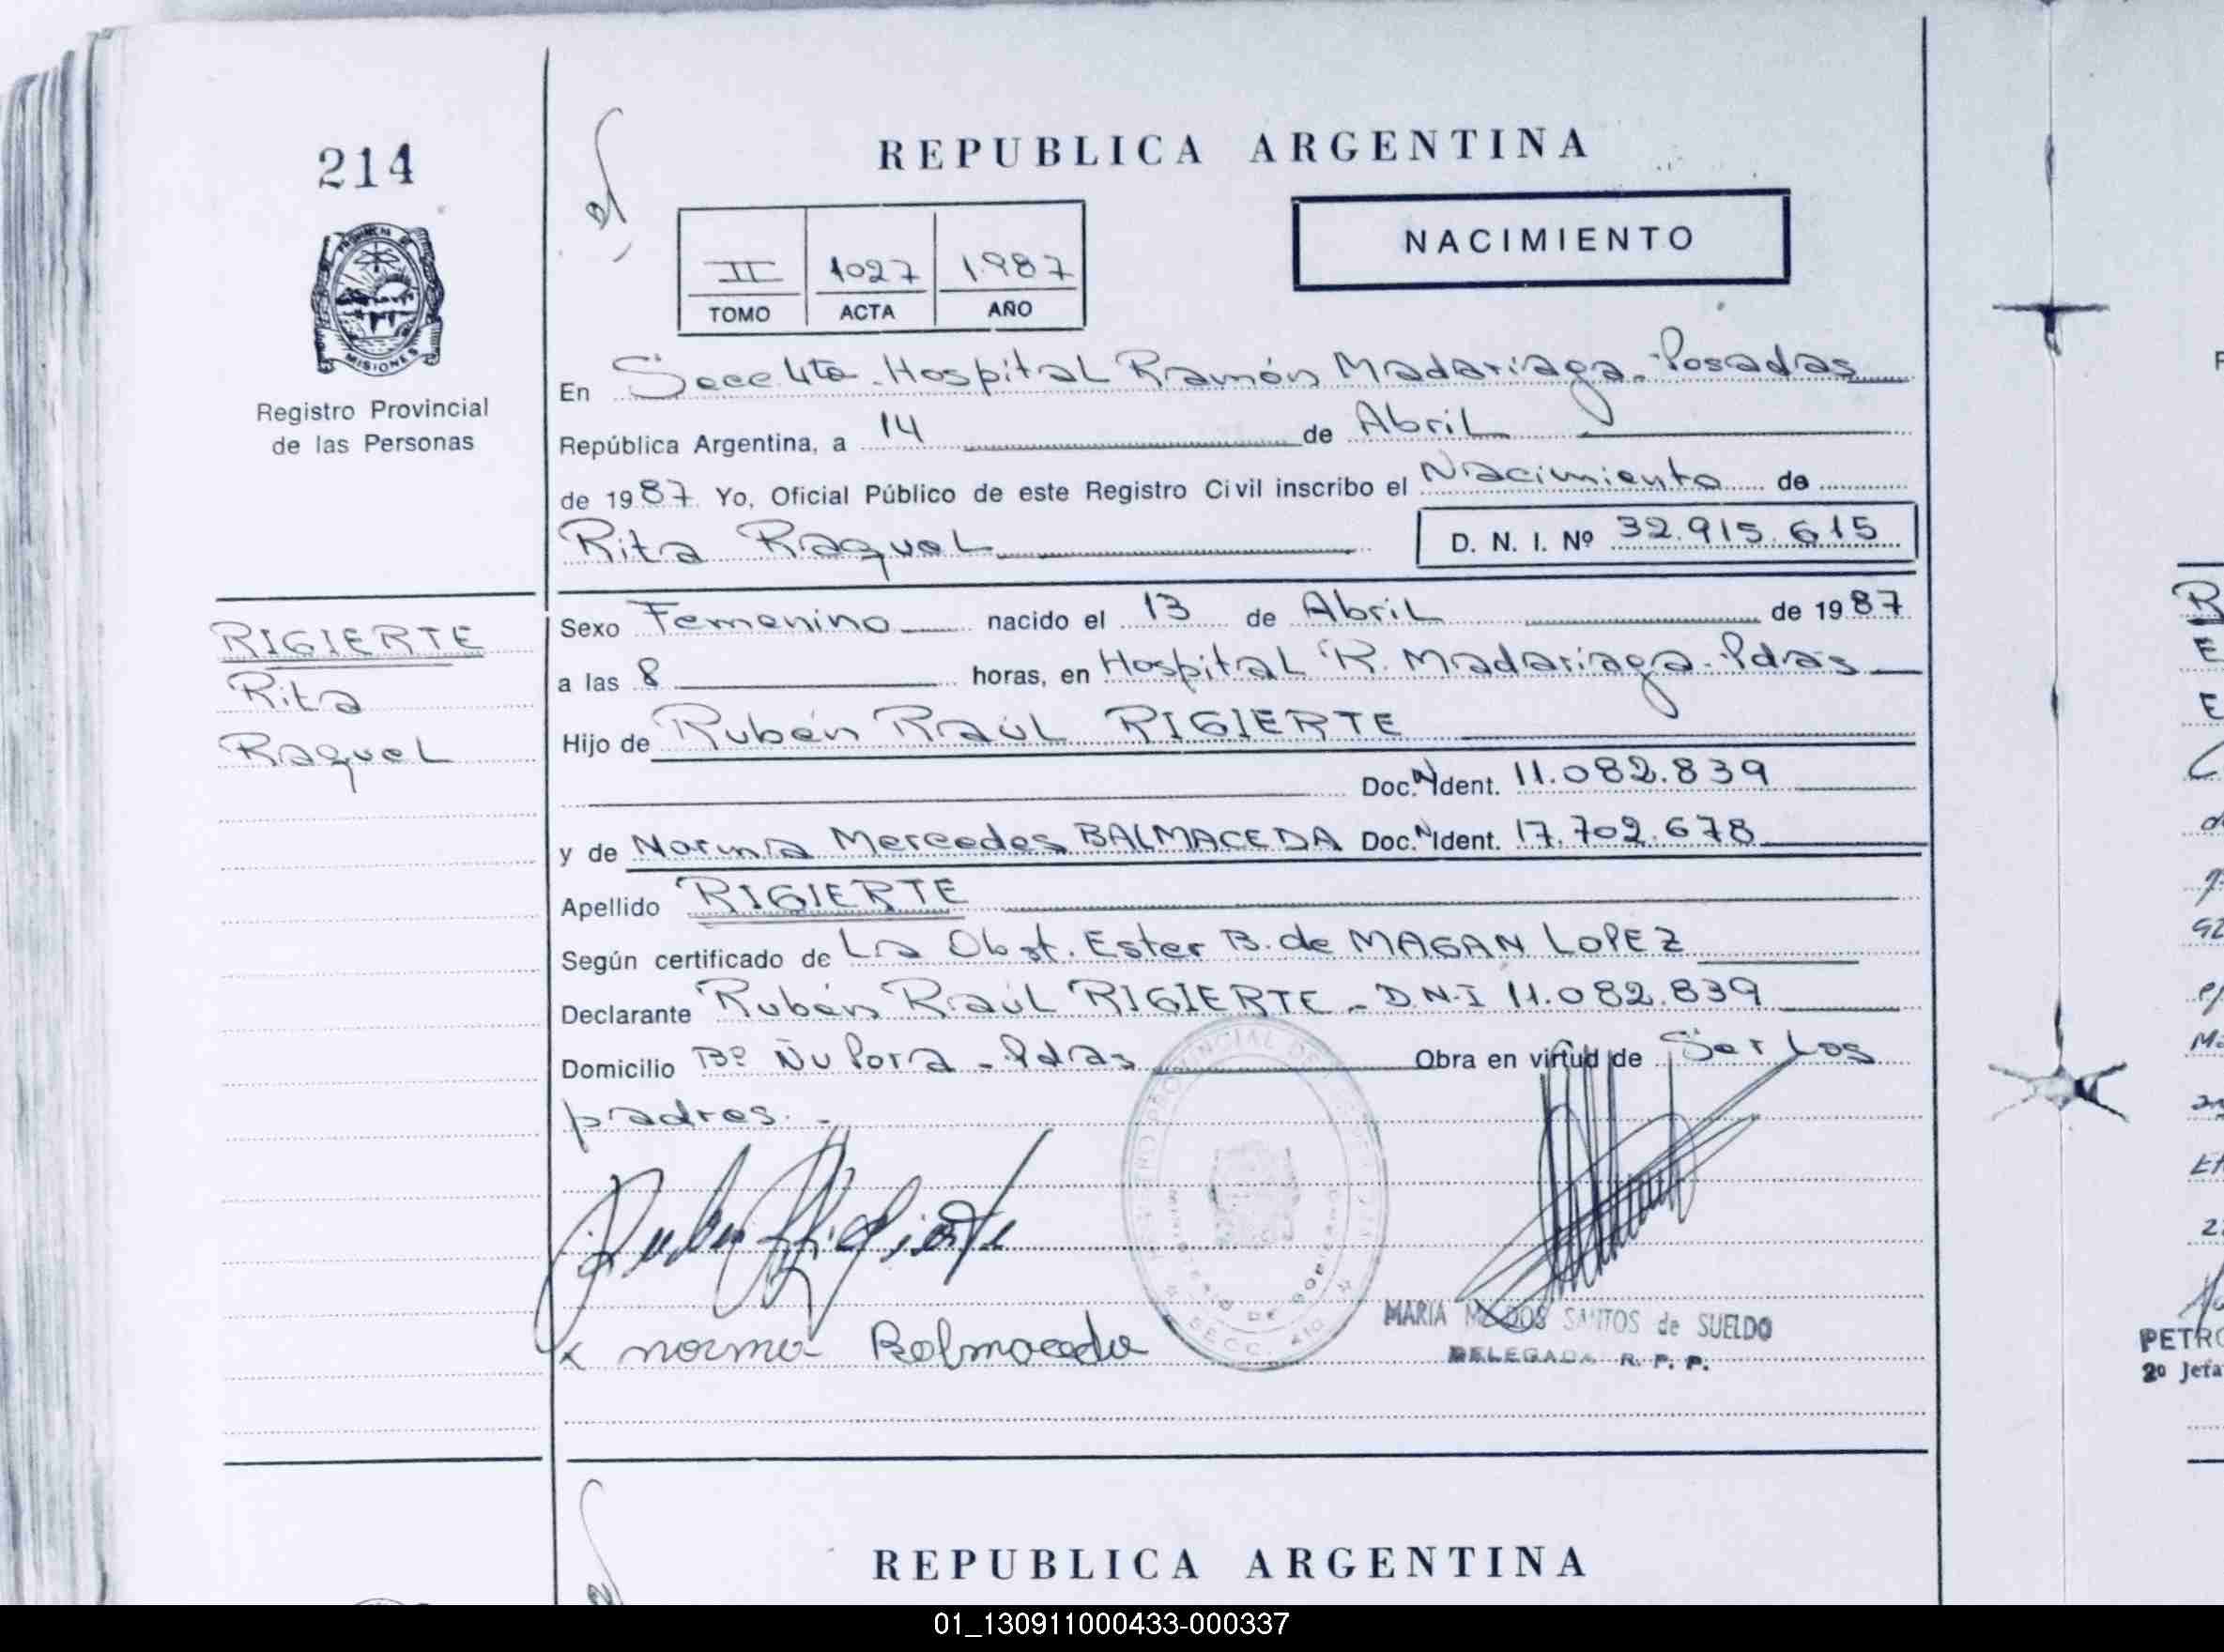 214
PROVINCIA DE
MISIONES
Registro Provincial
de las Personas
RIGIERTE
Rita
Raquel
REPUBLICA ARGENTINA
NACIMIENTO
II 1027 1.987
TOMO ACTA AÑO
En Secc 4ta. Hospital Ramón Madariaga. Posadas
República Argentina, a 14 de Abril
de 1987. Yo, Oficial Público de este Registro Civil inscribo el Nacimiento de
Rita Raquel D. N. I. Nº 32.915.615
Sexo Femenino nacido el 13 de Abril de 1987
a las 8 horas, en Hospital R. Madariaga. Pdas
Hijo de Rubén Raúl RIGIERTE
Doc. N Ident. 11.082.839
y de Norma Mercedes BALMACEDA Doc. N Ident. 17.702.678
Apellido RIGIERTE
Según certificado de La Obst. Ester B. de MAGAN LOPEZ
Declarante Rubén Raúl RIGIERTE - D.N.I 11.082.839
Domicilio Bº Ñu Pora - Pdas Obra en virtud de Ser los
padres. -
Ruben Rigierte
x norma Balmaceda
MARIA DOS SANTOS de SUELDO
DELEGADA R. P. P.
REPUBLICA ARGENTINA
PETRO
2º Jefa
01_130911000433-000337